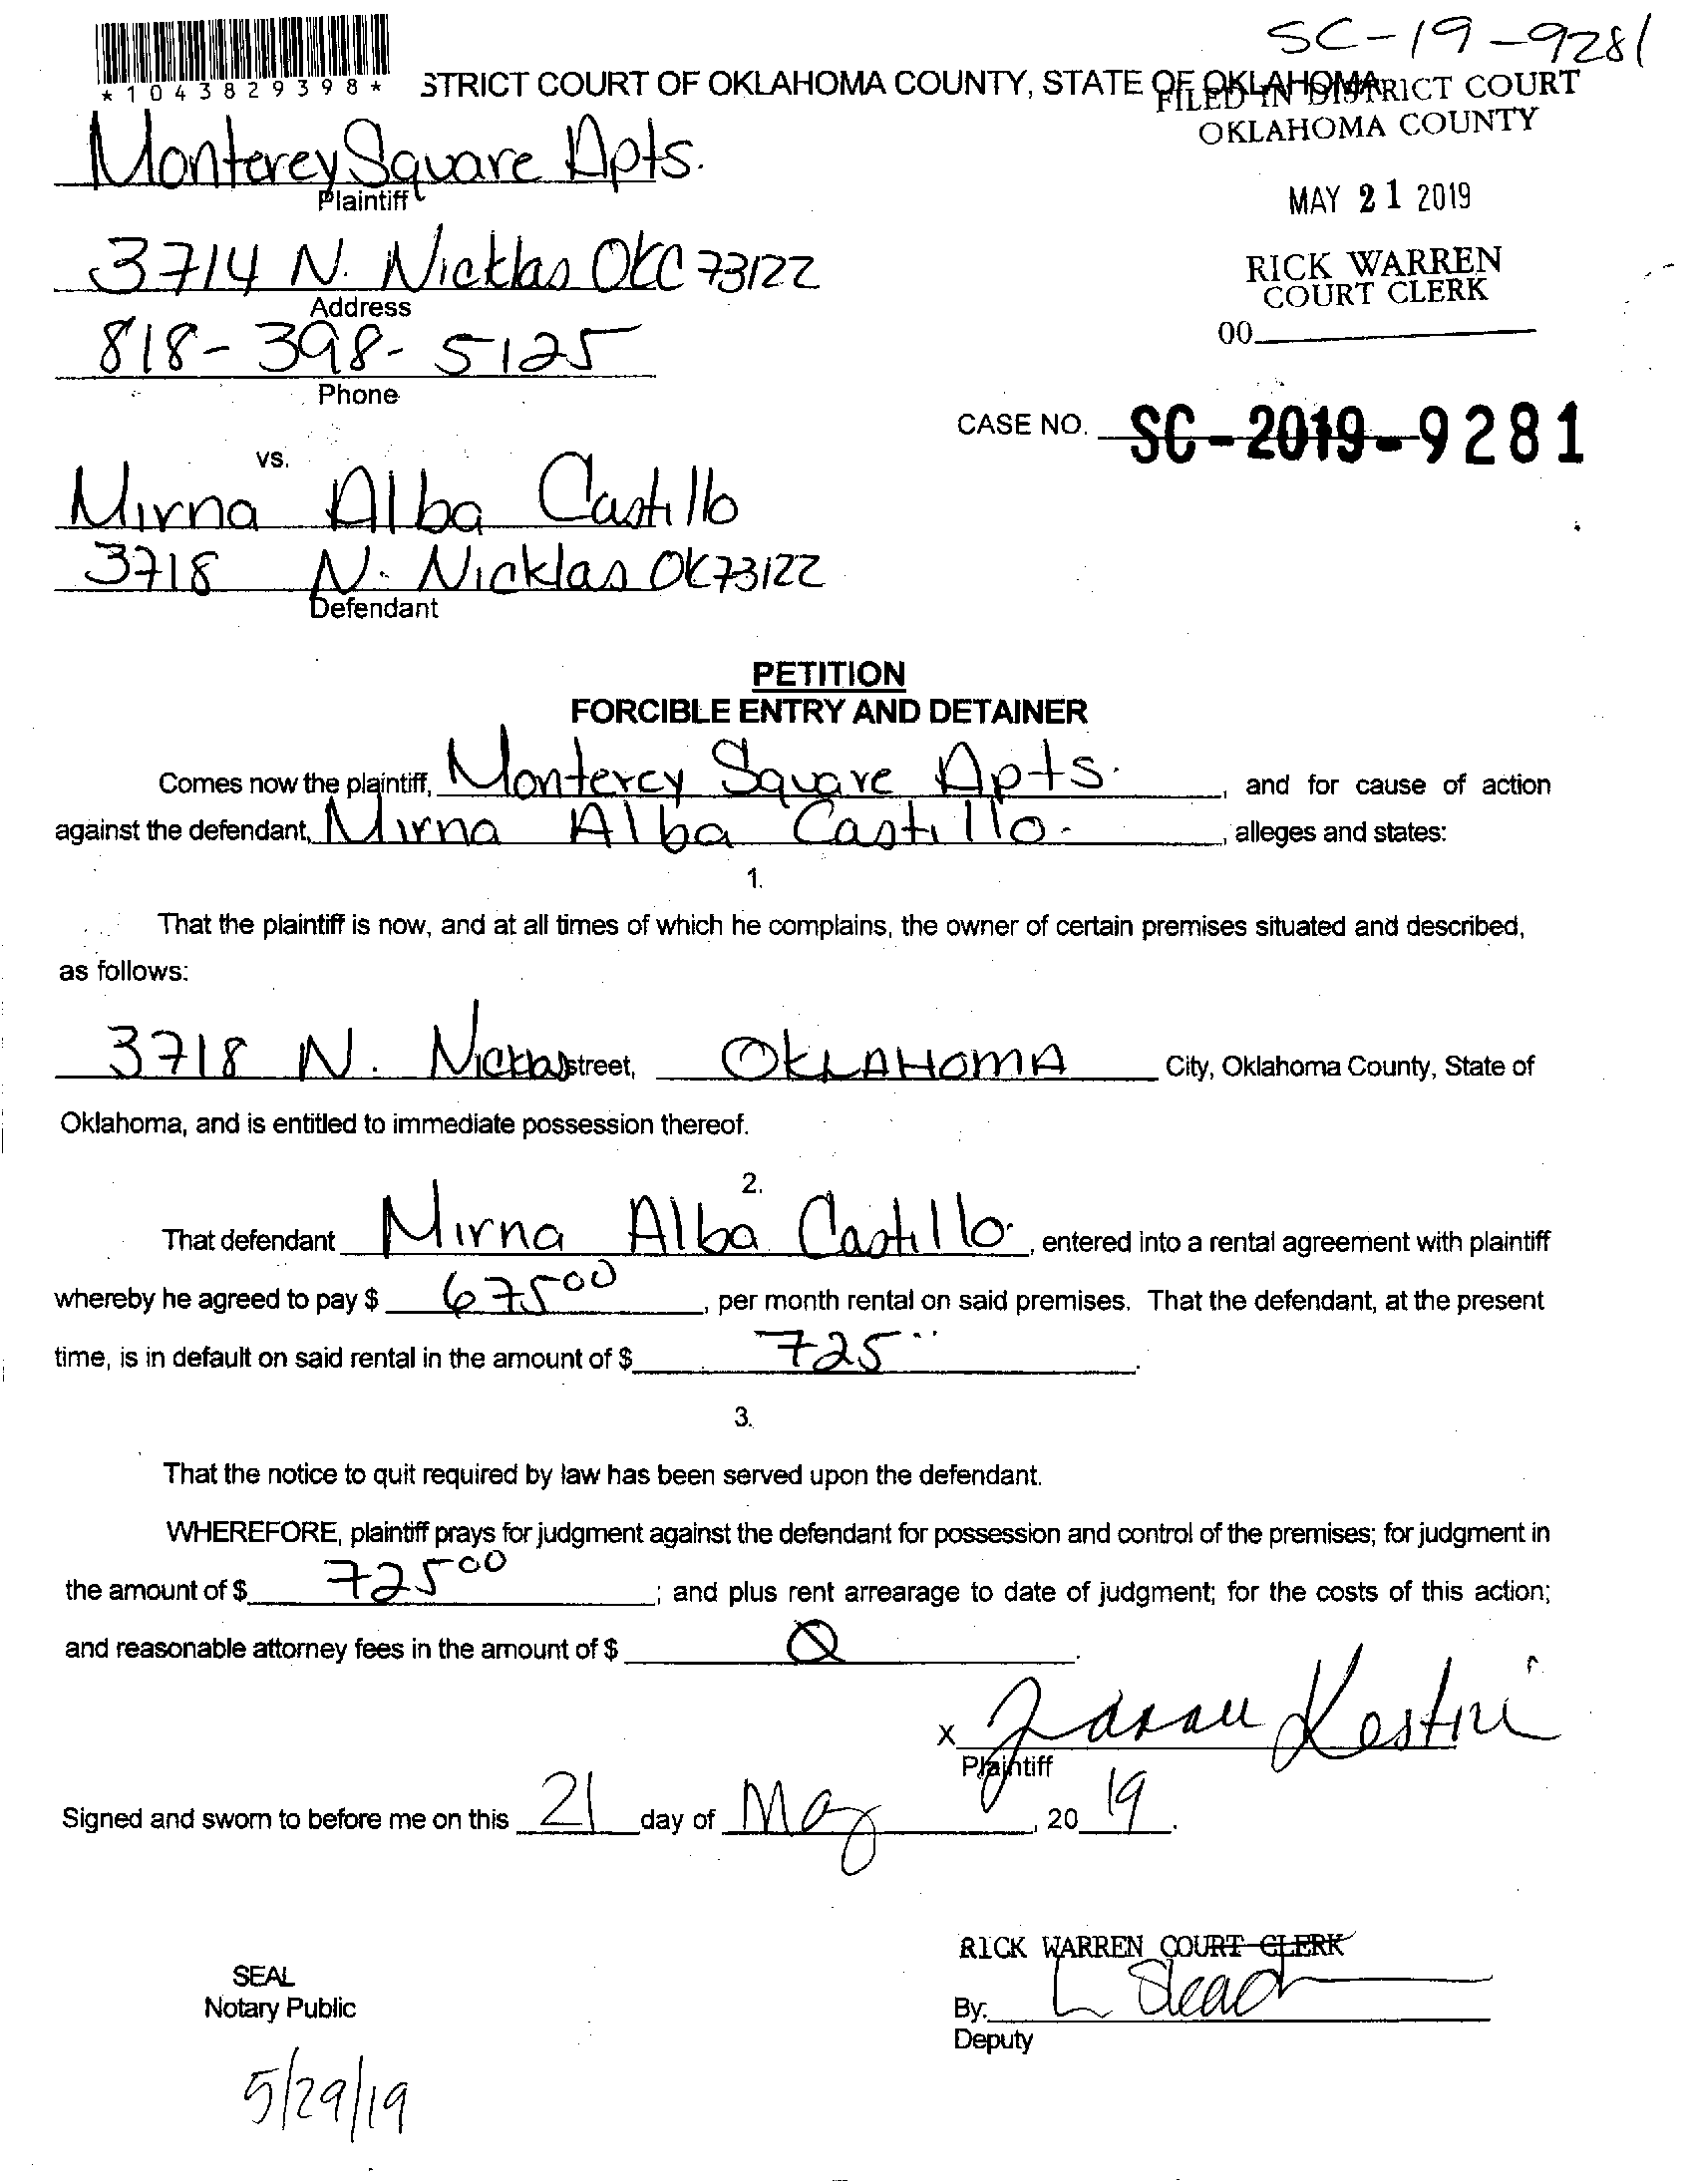 SC-19-9281
*1043829398*
STRICT COURT OF OKLAHOMA COUNTY, STATE OF OKLAHOMA
FILED IN DISTRICT COURT
OKLAHOMA COUNTY
Monterey Square Apts.
Plaintiff
MAY 21 2019
3714 N. Nicklas OKC 73122
Address
RICK WARREN
COURT CLERK
00
818-398-5125
Phone
CASE NO. SC-2019-9281
vs.
Mirna Alba Castillo
3718 N. Nicklas OK 73122
Defendant
PETITION
FORCIBLE ENTRY AND DETAINER
Comes now the plaintiff, Monterey Square Apts. , and for cause of action
against the defendant, Mirna Alba Castillo. , alleges and states:
1.
That the plaintiff is now, and at all times of which he complains, the owner of certain premises situated and described,
as follows:
3718 N. Nicklas street, OKLAHOMA City, Oklahoma County, State of
Oklahoma, and is entitled to immediate possession thereof.
2.
That defendant Mirna Alba Castillo. , entered into a rental agreement with plaintiff
whereby he agreed to pay $ 675 00 , per month rental on said premises. That the defendant, at the present
time, is in default on said rental in the amount of $ 725 .
3.
That the notice to quit required by law has been served upon the defendant.
WHEREFORE, plaintiff prays for judgment against the defendant for possession and control of the premises; for judgment in
the amount of $ 725 00 ; and plus rent arrearage to date of judgment; for the costs of this action;
and reasonable attorney fees in the amount of $ 0 .
X
Plaintiff
Signed and sworn to before me on this 21 day of May , 20 19 .
RICK WARREN COURT CLERK
SEAL
Notary Public
By:
Deputy
5/29/19